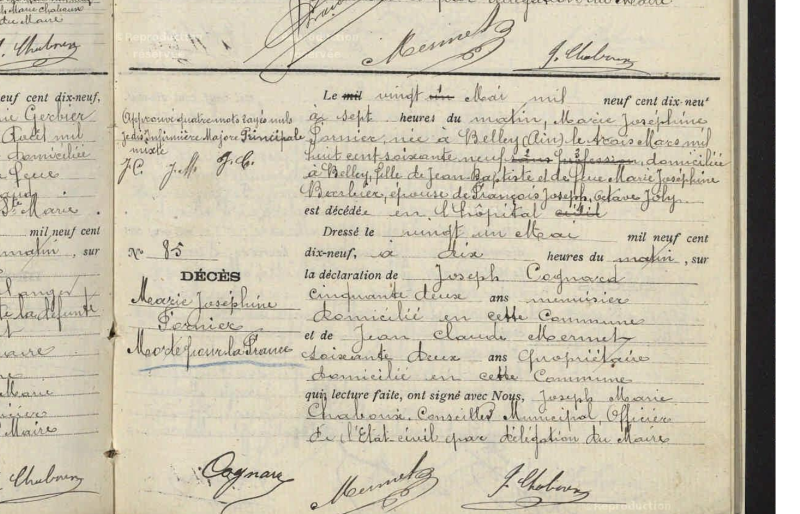 Marie Chabeux
du Maire
par délégation du Maire
J. Chaboux
Mermet
J. Chaboux
neuf cent dix-neuf,
Gerbier
mil
domiciliée
feue
Marie
mil neuf cent
matin, sur
la défunte
Maire
J. Chaboux
Le mil vingt un Mai mil neuf cent dix-neuf
à sept heures du matin, Marie Joséphine
Fornier, née à Belley (Ain) le trois Mars mil
huit cent soixante neuf sans profession, domiciliée
à Belley, fille de Jean Baptiste et de feue Marie Joséphine
Barbier, épouse de François Joseph, Octave Joly
est décédée en l'hôpital civil
Approuvé quatre mots rayés nuls
je dis Infirmière Majore Principale
mixte
J.C. J.M. J.C.
Dressé le vingt un Mai mil neuf cent
dix-neuf, à dix heures du matin, sur
la déclaration de Joseph Cognard
cinquante deux ans menuisier
domicilié en cette Commune
et de Jean Claude Mermet
soixante deux ans Propriétaire
domicilié en cette Commune
qui, lecture faite, ont signé avec Nous, Joseph Marie
Chaboux, Conseiller Municipal Officier
de l'Etat-civil par délégation du Maire
N° 85
DÉCÈS
Marie Joséphine
Fornier
Morte pour la France
Cognard
Mermet
J. Chaboux